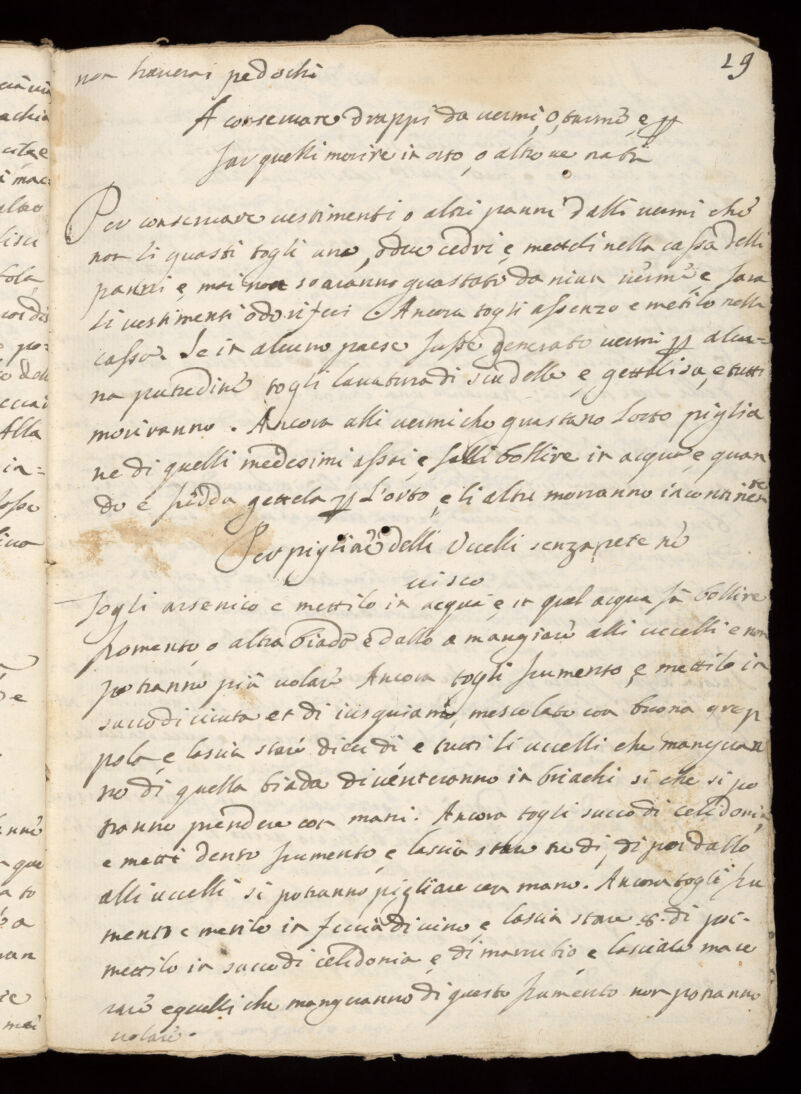 29
non haverai pedochi
A conservare drappi da vermi, o, tarme, e p
far quelli morire in orto, o altrove nati
Per conservare vestimenti o altri panni dalli vermi che
non li guasti togli uno, o due cedri e, metteli nella cassa delli
panni e, mai non saranno guastati da niun verme, e sara
li vestimenti odoriferi. Ancora togli assenzo e metilo nella
cassa. Se in alcuno paese fusse generato vermi p alcu=
na putredine togli lavatura di scudelle e, gettalisa, e tutti
moriranno. Ancora alli vermi che guastano l'orto piglia
ne di quelli medesimi assai, e falli bollire in acqua, e quan
do e fredda gettela p l'orto, e li altri morranno incontinente
Per pigliare delli Uccelli senza rete ne
visco
Togli arsenico e mettilo in acqua, e, in quel acqua fa bollire
formento, o altra biada e dallo a mangiare alli uccelli e non
potranno più volare Ancora togli frumento, e mettilo in
succo di cicuta et di iusquiamo, mescolato con buona grap
pola, e lascia stare dieci dì e tutti li uccelli che manguan
no di quella biada diventeranno imbriachi si che si po
tranno prendere con mani. Ancora togli succo di celidonia,
e metti dentro frumento, e lascia stare tre dì, di poi dallo
alli uccelli si potranno pigliare con mano. Ancora togli fru
mento e metilo in feccia di vino, e lascia stare 8. dì poi
mettilo in succo di celidonia e, di marrubio, e lascialo mace
rare e quelli che manguanno di questo frumento non potranno
volare.